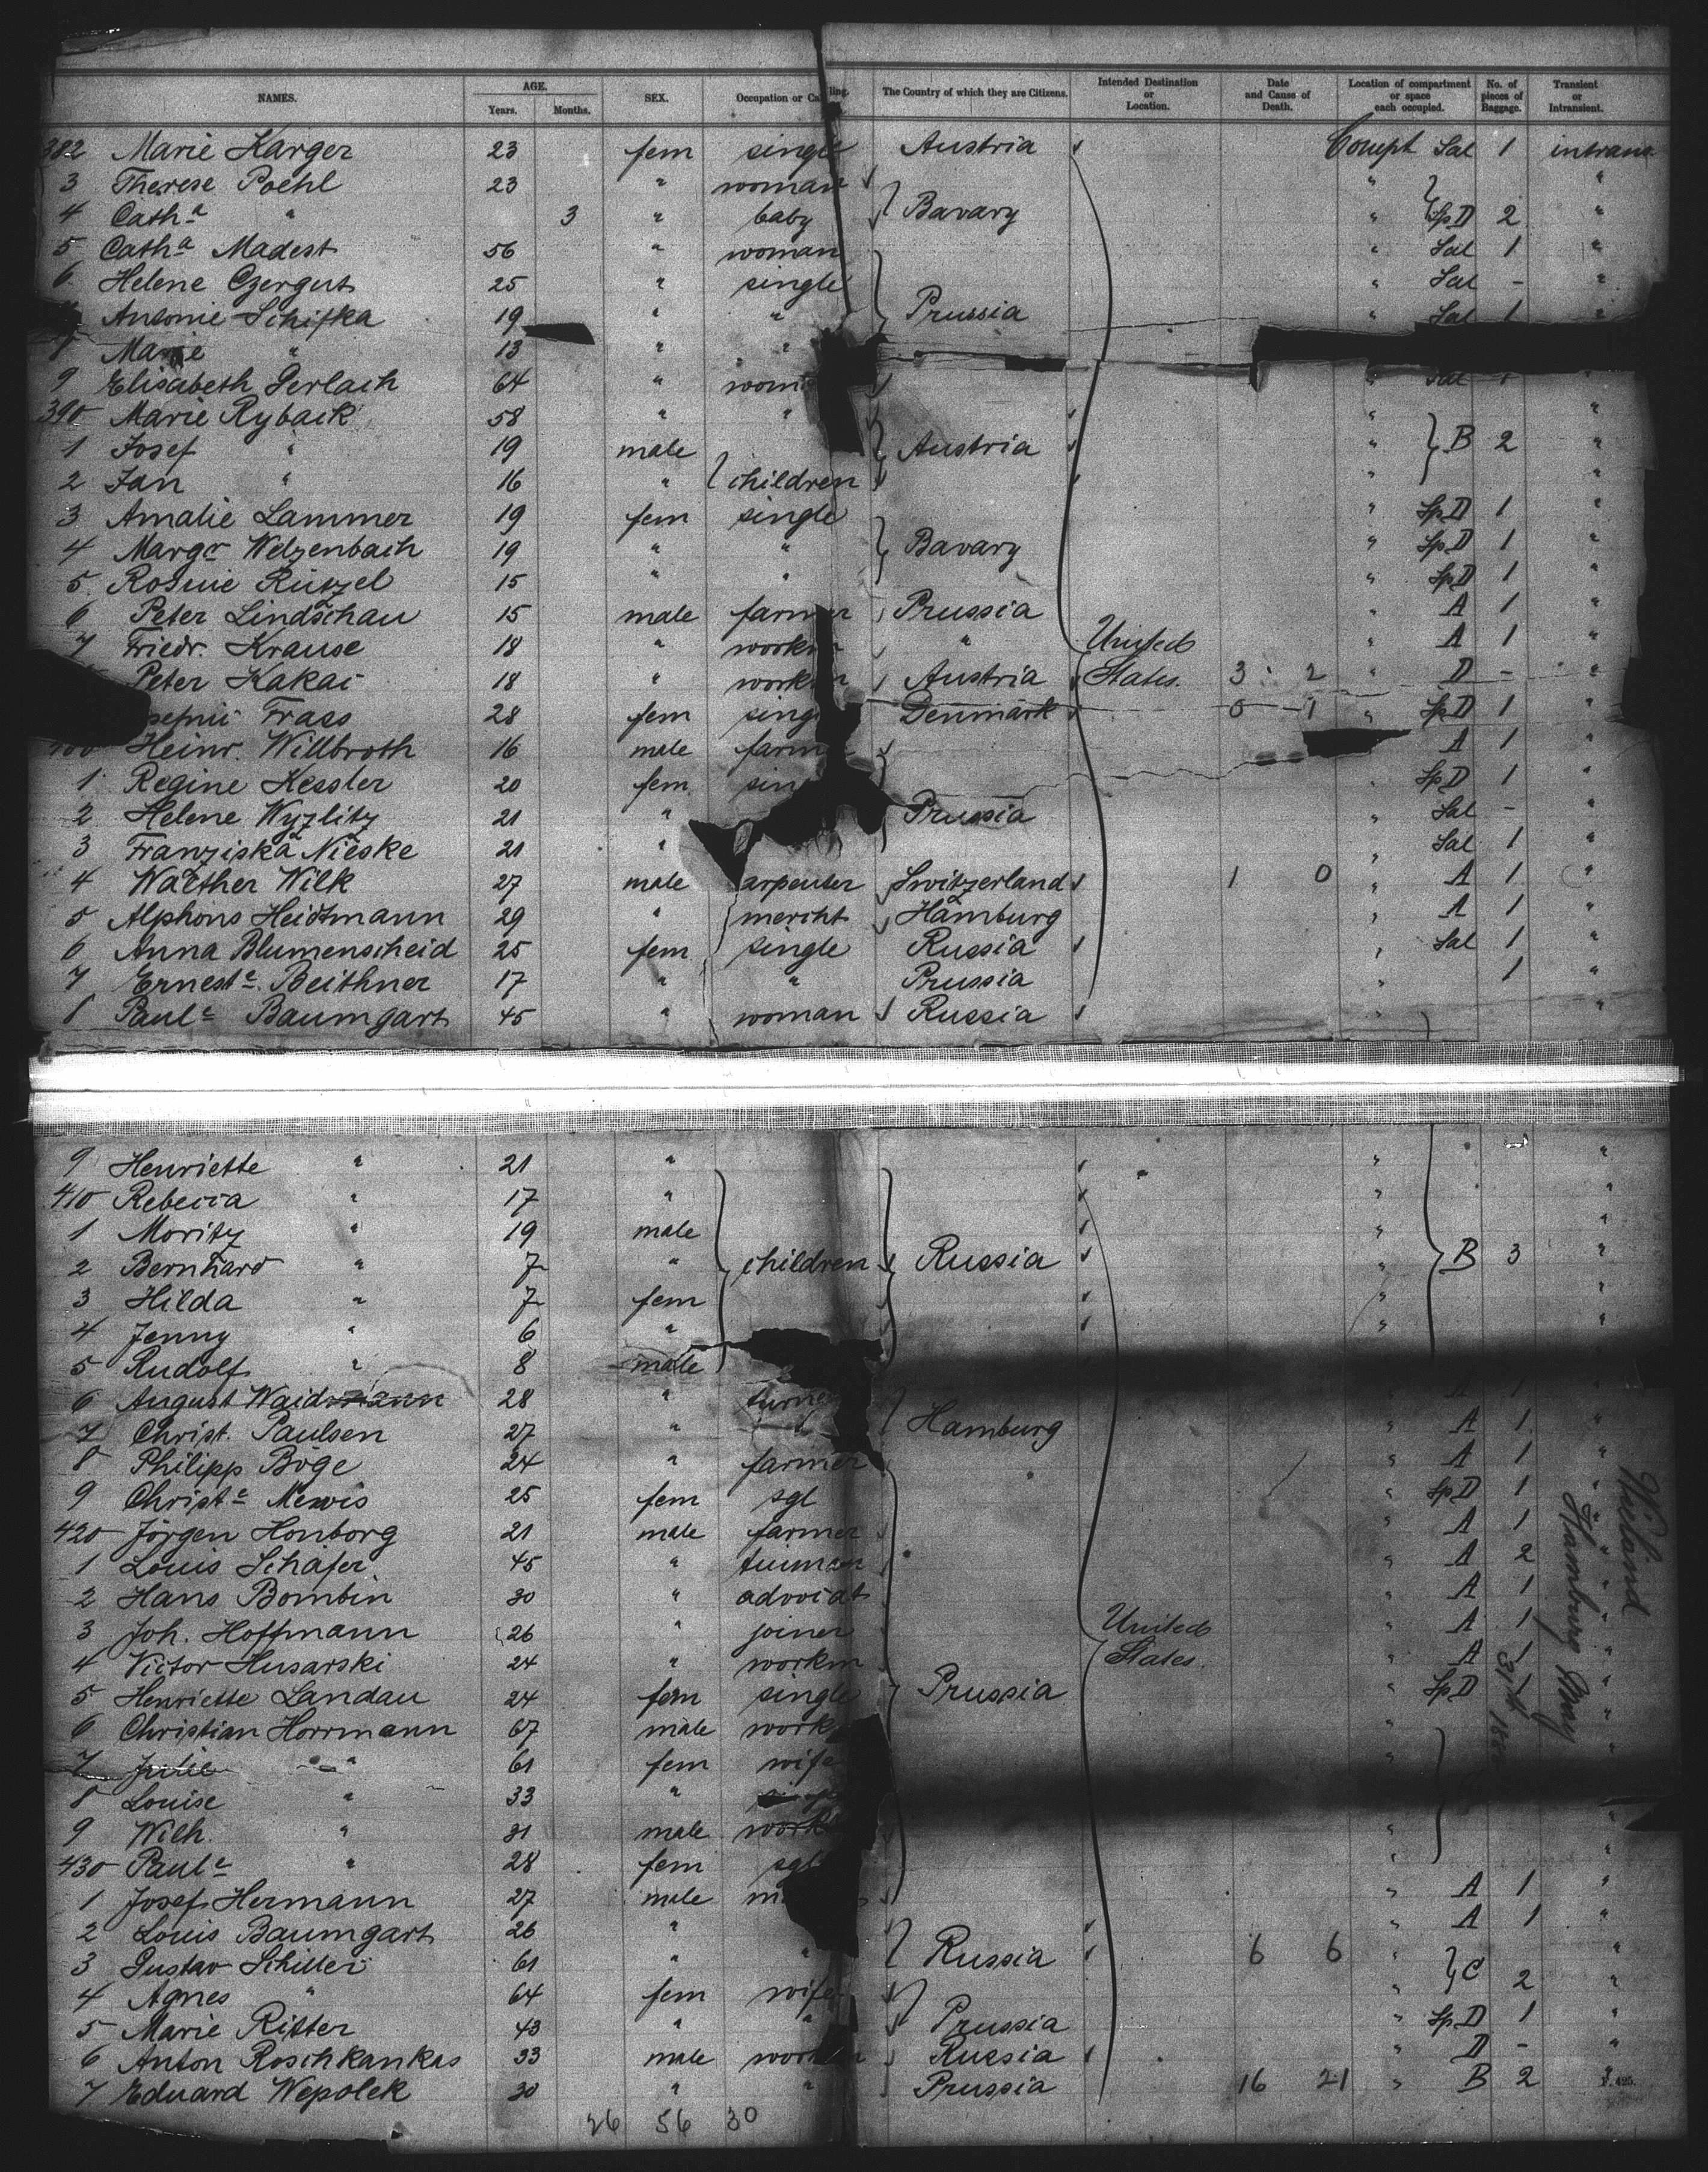 NAMES. AGE. Years. Months. SEX. Occupation or Calling. The Country of which they are Citizens. Intended Destination or Location. Date and Cause of Death. Location of compartment or space each occupied. No. of pieces of Baggage. Transient or Intransient.
382 Marie Karger 23 fem single Austria Compt Sal 1 intrans
3 Therese Poehl 23 " woman " "
4 Cath.a " 3 " baby Bavary " Sp D 2 "
5 Cath.a Madest 56 " woman " Sal 1 "
6 Helene Czergut 25 " single " Sal - "
Antonie Schifka 19 " " Prussia " Sal 1
8 Marie " 13 " "
9 Elisabeth Gerlach 64 " " Sal 1 "
390 Marie Ryback 58 " " " "
1 Josef " 19 male Austria " B 2 "
2 Jan " 16 " children " "
3 Amalie Lammer 19 fem single " Sp D 1 "
4 Margr Welzenbach 19 " " Bavary " Sp D 1 "
5 Rosine Rützel 15 " " " Sp D 1 "
6 Peter Lindschau 15 male farmer Prussia " A 1 "
7 Friedr. Krause 18 " " United " A 1 "
Peter Kakai 18 " Austria States. 3 2 " D - "
Frass 28 fem Denmark 0 1 " Sp D 1 "
400 Heinr. Willbroth 16 male A 1 "
1 Regine Kessler 20 fem " Sp D 1 "
2 Helene Wyzlitz 21 " Prussia " Sal - "
3 Franziska Nieske 21 " " Sal 1 "
4 Walther Wilk 27 male carpenter Switzerland 1 0 " A 1 "
5 Alphons Heidtmann 29 " mercht Hamburg " A 1 "
6 Anna Blumenscheid 25 fem single Russia " Sal 1 "
7 Ernest.e Beithner 17 " " Prussia " 1 "
8 Paul.e Baumgart 45 " woman Russia " "
9 Henriette " 21 " " "
410 Rebecca " 17 " " "
1 Moritz " 19 male " "
2 Bernhard " 7 " children Russia " B 3 "
3 Hilda " 7 fem " "
4 Jenny " 6 " " "
5 Rudolf " 8 male
6 August Waidmann 28 " turner A 1
7 Christ. Paulsen 27 " Hamburg " A 1 "
8 Philipp Böge 24 " farmer " A 1 "
9 Christ.e Mewis 25 fem sgl " Sp D 1 "
420 Jörgen Honborg 21 male farmer " A 1 "
1 Louis Schäfer 45 " " A 2 "
2 Hans Bombin 30 " advocat " A 1 "
3 Joh. Hoffmann 26 " joiner United " A 1 "
4 Victor Husarski 24 " workm States. " A 1 "
5 Henriette Landau 24 fem single Prussia " Sp D 1 "
6 Christian Horrmann 67 male " "
7 Julie " 61 fem wife "
8 Louise " 33 "
9 Wilh. " 31 male " "
430 Paul.e " 28 fem sgl " "
1 Josef Hermann 27 male " A 1 "
2 Louis Baumgart 26 " " A 1 "
3 Gustav Schiller 61 " " Russia 6 6 " "
4 Agnes " 64 fem wife " C 2 "
5 Marie Ritter 43 " " Prussia " Sp D 1 "
6 Anton Roschkankas 33 male Russia " D - "
7 Eduard Wepolek 30 " " Prussia 16 21 " B 2
26 56 30
Wieland
Hamburg May
31st